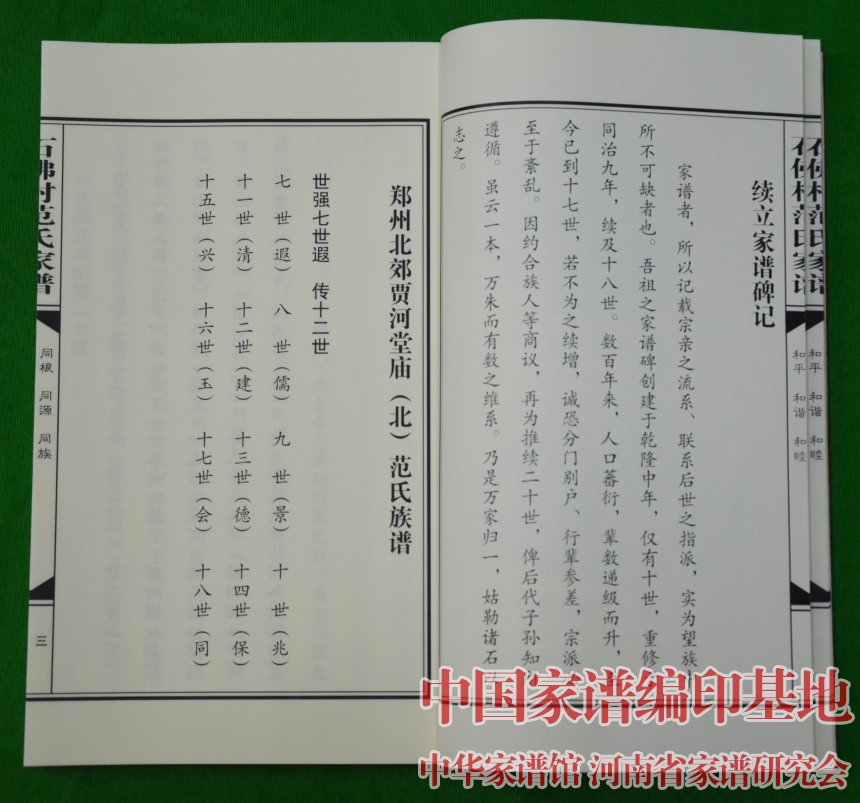 续立家谱碑记
家谱者，所以记载宗亲之流系、联系后世之指派，实为望族
所不可缺者也。吾祖之家谱碑创建于乾隆中年，仅有十世，重修
同治九年，续及十八世。数百年来，人口蕃衍，辈数递级而升，
今已到十七世，若不为之续增，诚恐分门别户、行辈参差，宗派
至于紊乱。因约合族人等商议，再为推续二十世，俾后代子孙知
遵循。虽云一本，万朱而有数之维系。乃是万家归一，姑勒诸石
志之。
和平 和谐 和睦
和平 和谐 和睦
郑州北郊贾河堂庙（北）范氏族谱
世强七世遐 传十二世
七世（遐） 八世（儒） 九世（景） 十世（兆）
十一世（清） 十二世（建） 十三世（德） 十四世（保）
十五世（兴） 十六世（玉） 十七世（会） 十八世（同）
石佛村范氏家谱
同根 同源 同族
三
中国家谱编印基地
中华家谱馆 河南省家谱研究会